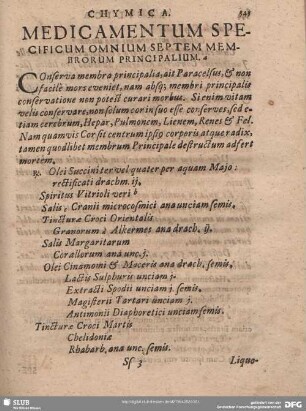 CHYMICA.
MEDICAMENTUM SPE-
CIFICUM OMNIUM SEPTEM MEM-
BRORUM PRINCIPALIUM. a
COnserva membra principalia, ait Paracelsus, & non
facile mors eveniet, nam absq; membri principalis
conservatione non potest curari morbus. Si enim vitam
velis conservare, non solum cor in suo esse conserves, sed e-
tiam cerebrum, Hepar, Pulmonem, Lienem, Renes & Fel.
Nam quamvis Cor sit centrum ipsiq; corporis atque radix,
tamen quodlibet membrum Principale destructum adfert
mortem.
℞. Olei Succini ter vel quater per aquam Majo-
rectificati drachm. ij.
Spiritus Vitrioli veri b
Salis, Cranii microcosmici ana unciam semis.
Tincturæ Croci Orientalis
Granorum è Alkermes ana drach. ij.
Salis Margaritarum
Corallorum ana unc. j.
Olei Cinamomi & Maceris ana drach. semis.
Lactis Sulphuris unciam j.
Extracti Spodii unciam j. semis.
Magisterii Tartari unciam j.
Antimonii Diaphoretici unciam semis.
Tincturæ Croci Martis
Chelidoniæ
Rhabarb. ana unc. semis.
Sſ 3 Liquo-
SLUB
DFG